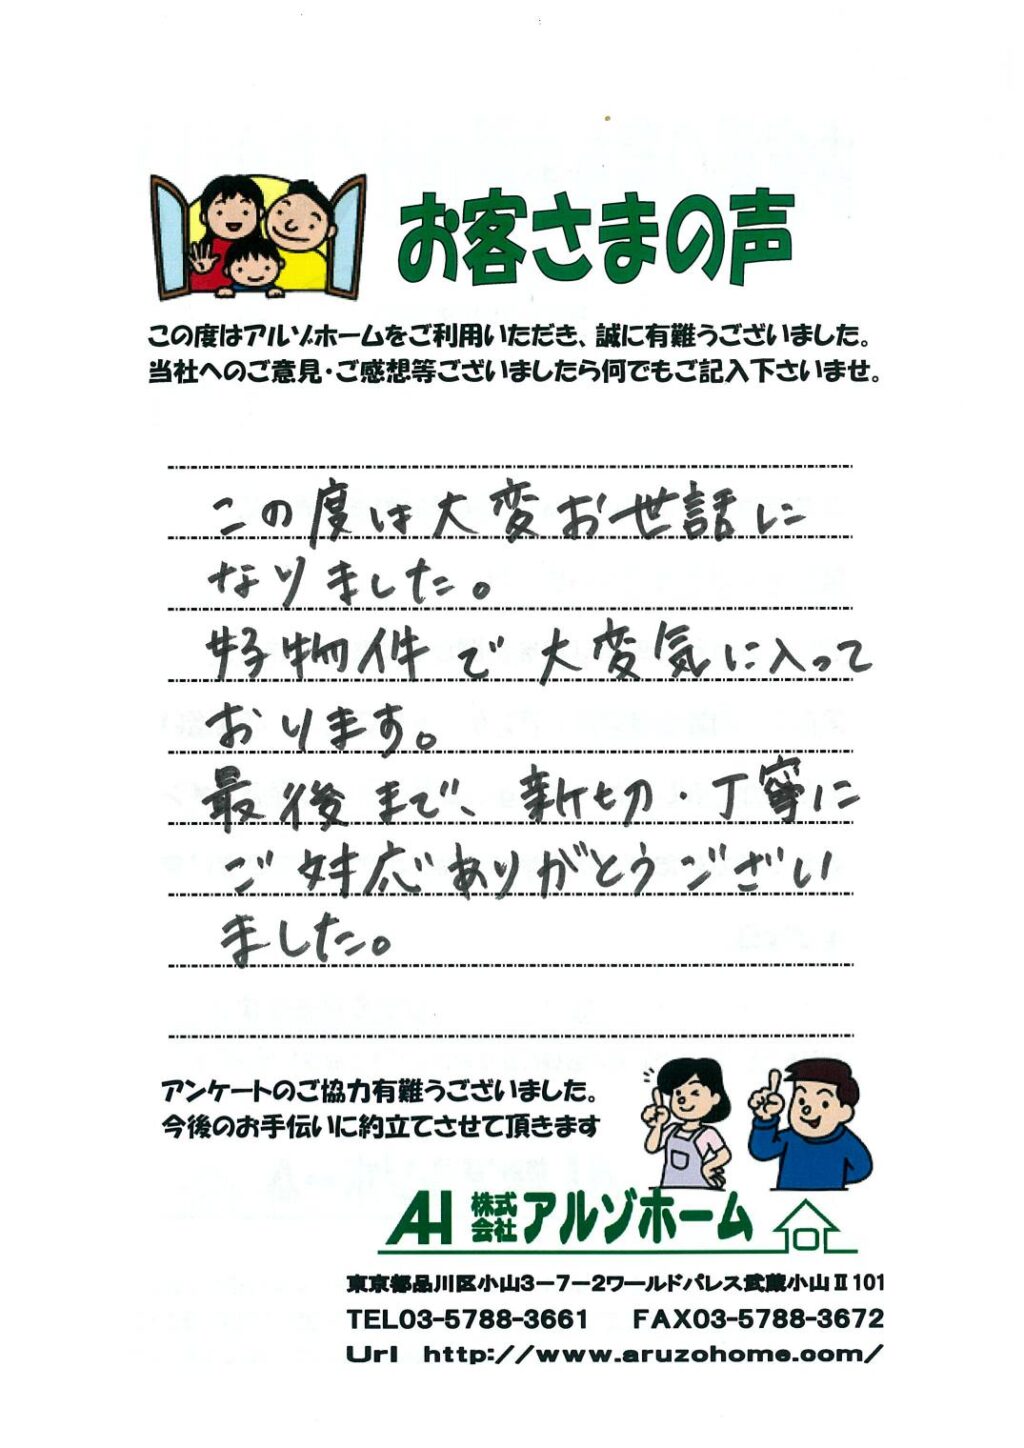 お客さまの声
この度はアルゾホームをご利用いただき、誠に有難うございました。
当社へのご意見・ご感想等ございましたら何でもご記入下さいませ。
この度は大変お世話に
なりました。
好物件で大変気に入って
おります。
最後まで、新切丁寧に
ご対応ありがとうござい
ました。
アンケートのご協力有難うございました。
今後のお手伝いに約立てさせて頂きます
AH 株式会社アルゾホーム
東京都品川区小山3-7-2ワールドパレス武蔵小山Ⅱ101
TEL03-5788-3661 FAX03-5788-3672
Url http://www.aruzohome.com/